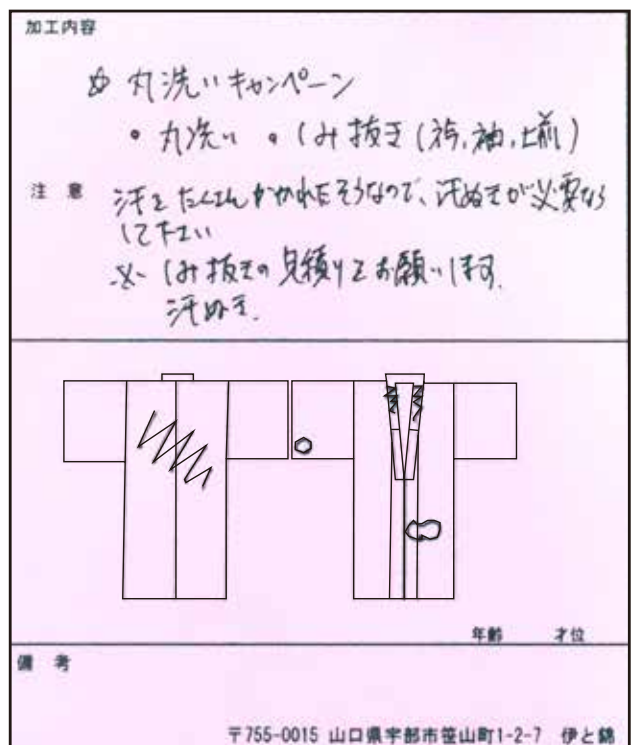 加工内容
丸洗いキャンペーン
・丸洗い ・しみ抜き(衿,袖,上前)
注意 汗をたくさんかかれたそうなので、汗ぬきが必要なら
して下さい
※ しみ抜きの見積りをお願いします.
汗ぬき.
年齢 才位
備考
〒755-0015 山口県宇部市笹山町1-2-7 伊と錦